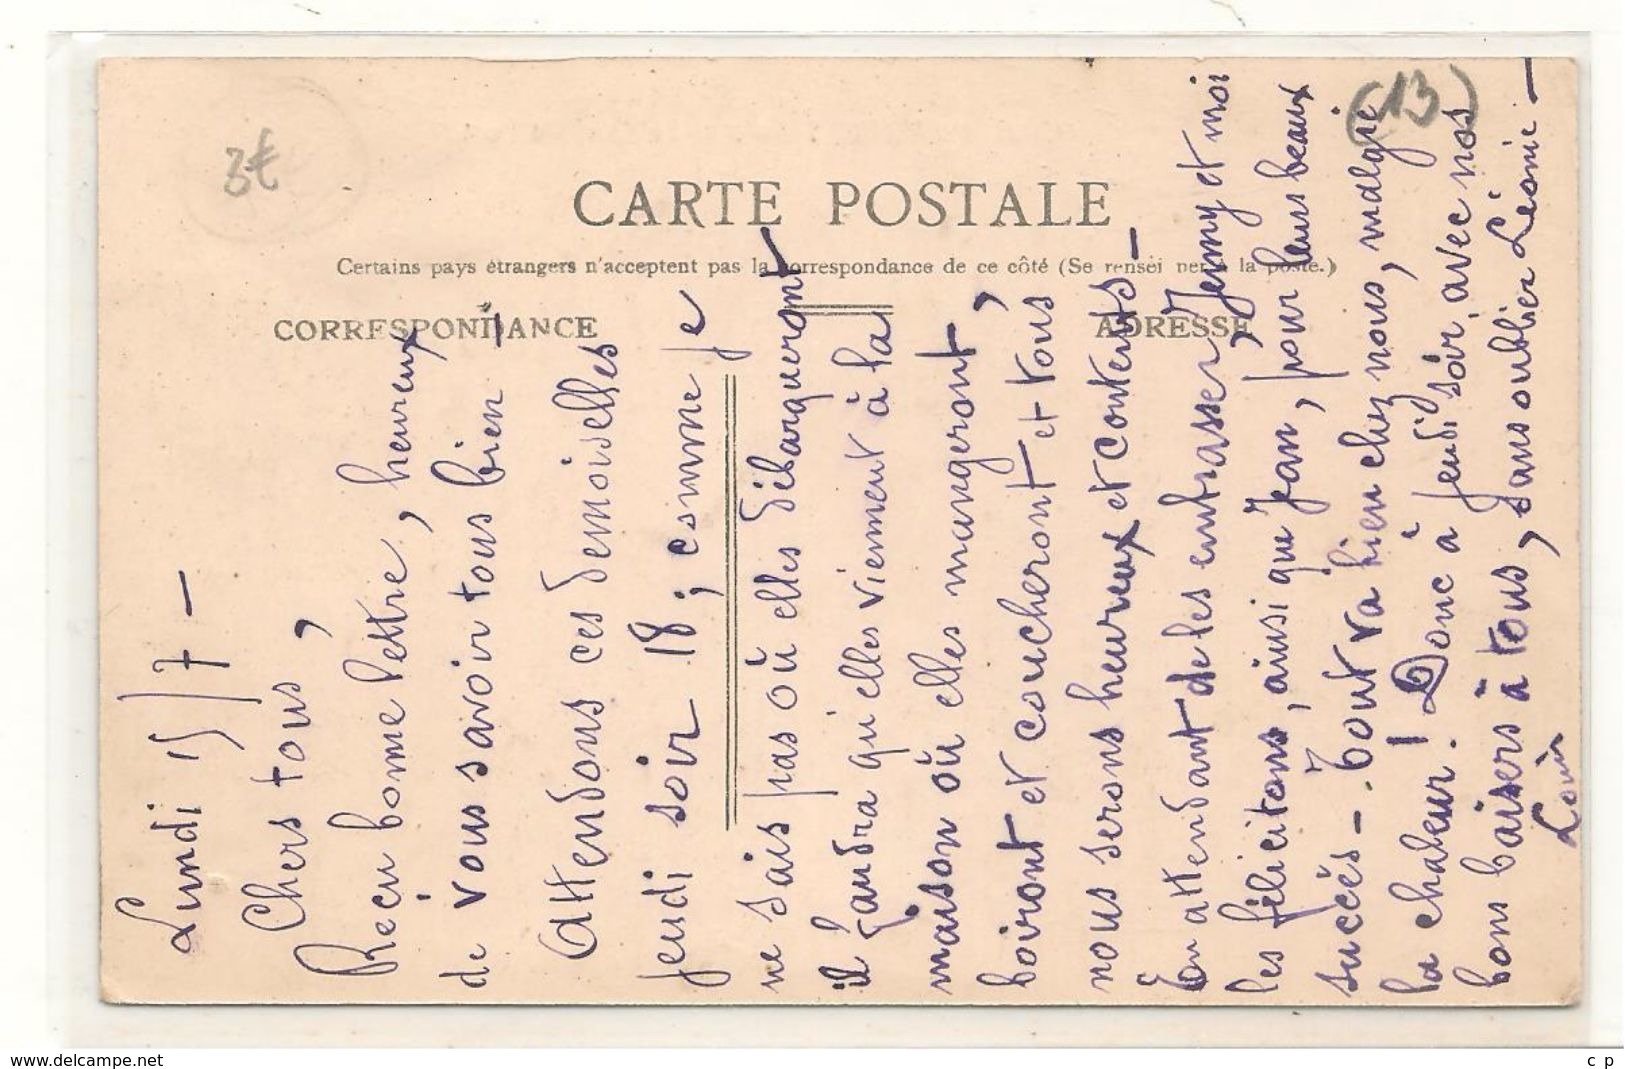 3€
(13)
CARTE POSTALE
Certains pays étrangers n'acceptent pas la correspondance de ce côté (Se rensei ner à la poste.)
CORRESPONDANCE
ADRESSE
Lundi 15/7 -
Chers tous,
Reçu bonne lettre, heureux
de vous savoir tous bien -
Attendons ces demoiselles
jeudi soir 18 ; comme je
ne sais pas où elles débarqueront
il faudra qu'elles viennent à la
maison où elles mangeront,
boiront et coucheront et tous
nous serons heureux et contents -
En attendant de les embrasser, Jenny et moi
les félicitons, ainsi que Jean, pour leurs beaux
succès - Tout va bien chez nous, malgré
la chaleur ! Donc à jeudi soir, avec nos
bons baisers à tous, sans oublier Léonie -
Louis
www.delcampe.net
c p